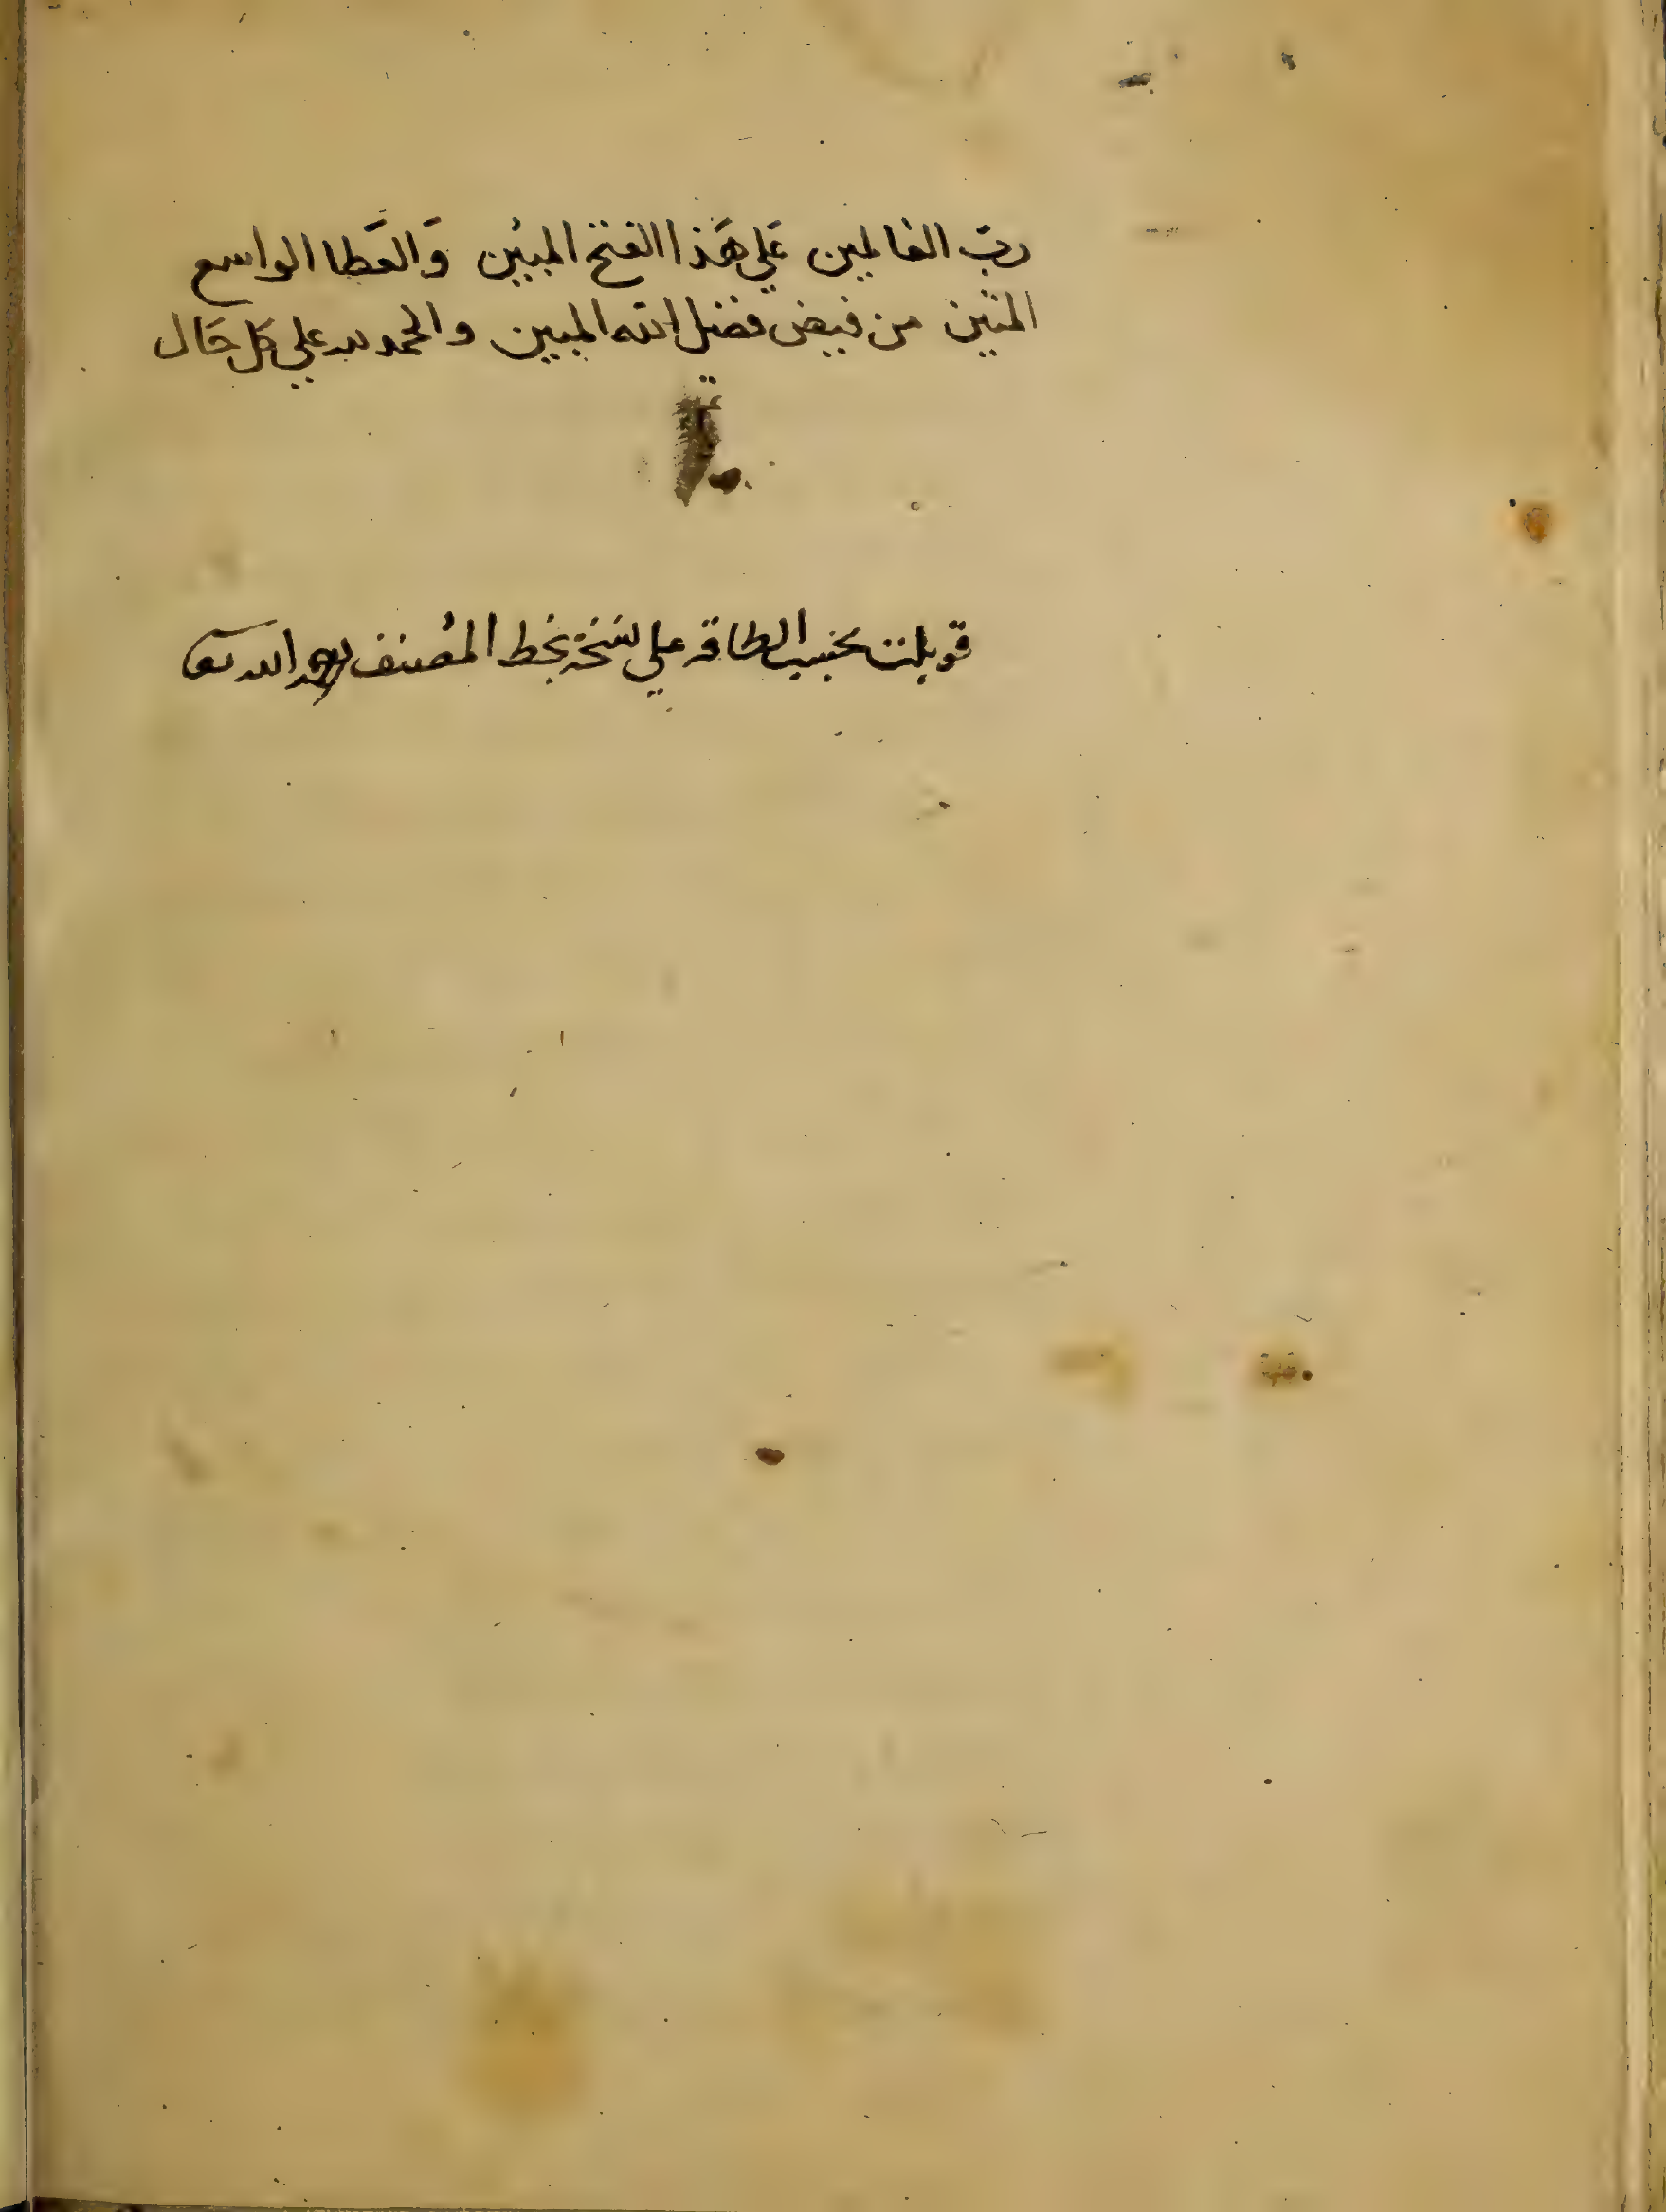 ربّ العالمين عَلي هَذا الفتح المبُين وَالعَطا الواسع
المتين من فيض فضل الله المبين والحمد لله علي كل حَال
قوبلت بحسب الطاقة علي نسخة بخط المُصنف رحمه الله تعا